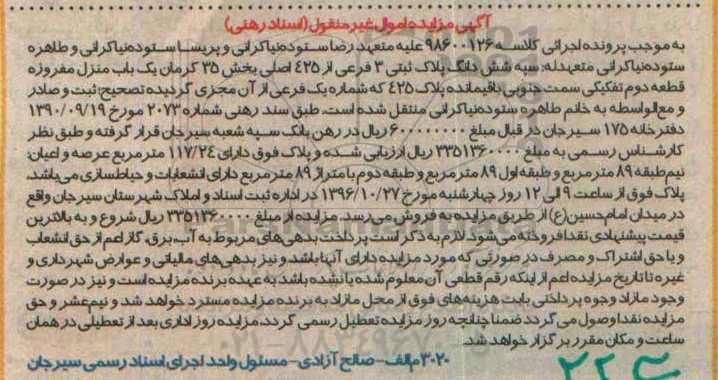 آگهی مزایده اموال غیر منقول (اسناد رهنی)
به موجب پرونده اجرائی کلاسه ۹۸۶۰۰۱۲۶ علیه متعهد رضا ستوده‌نیاکرانی و پریسا ستوده‌نیاکرانی و طاهره
ستوده‌نیاکرانی متعهدله: سپه شش دانگ پلاک ثبتی ۳ فرعی از ۴۲۵ اصلی بخش ۳۵ کرمان یک باب منزل مفروزه
قطعه دوم تفکیکی سمت جنوبی باقیمانده پلاک ۴۲۵ که شماره یک فرعی از آن مجزی گردیده تصحیح ثبت و صادر
و مع‌الواسطه به خانم طاهره ستوده‌نیاکرانی منتقل شده است. طبق سند رهنی شماره ۲۰۷۳ مورخ ۱۳۹۰/۰۹/۱۹
دفترخانه ۱۷۵ سیرجان در قبال مبلغ ۶۰۰۰۰۰۰۰۰ ریال در رهن بانک سپه شعبه سیرجان قرار گرفته و طبق نظر
کارشناس رسمی به مبلغ ۳۳۵۱۳۶۰۰۰۰ ریال ارزیابی شده و پلاک فوق دارای ۱۱۷/۲۴ متر مربع عرصه و اعیان:
نیم‌طبقه ۸۹ متر مربع و طبقه اول ۸۹ متر مربع و طبقه دوم با متراژ ۸۹ متر مربع دارای انشعابات و حیاط‌سازی می‌باشد.
پلاک فوق از ساعت ۹ الی ۱۲ روز چهارشنبه مورخ ۱۳۹۶/۱۰/۲۷ در اداره ثبت اسناد و املاک شهرستان سیرجان واقع
در میدان امام‌حسین(ع) از طریق مزایده به فروش می‌رسد. مزایده از مبلغ ۳۳۵۱۳۶۰۰۰۰ ریال شروع و به بالاترین
قیمت پیشنهادی نقدا فروخته می‌شود. لازم به ذکر است پرداخت بدهی‌های مربوط به آب، برق، گاز اعم از حق انشعاب
و یا حق اشتراک و مصرف در صورتی که مورد مزایده دارای آنها باشد و نیز بدهی‌های مالیاتی و عوارض شهرداری و
غیره تا تاریخ مزایده اعم از اینکه رقم قطعی آن معلوم شده یا نشده باشد به عهده برنده مزایده است و نیز در صورت
وجود مازاد وجوه پرداختی بابت هزینه‌های فوق از محل مازاد به برنده مزایده مسترد خواهد شد و نیم‌عشر و حق
مزایده نقدا وصول می گردد ضمنا چنانچه روز مزایده تعطیل رسمی گردد، مزایده روز اداری بعد از تعطیلی در همان
ساعت و مکان مقرر برگزار خواهد شد.
۳۰۲۰ م‌الف- صالح آزادی- مسئول واحد اجرای اسناد رسمی سیرجان